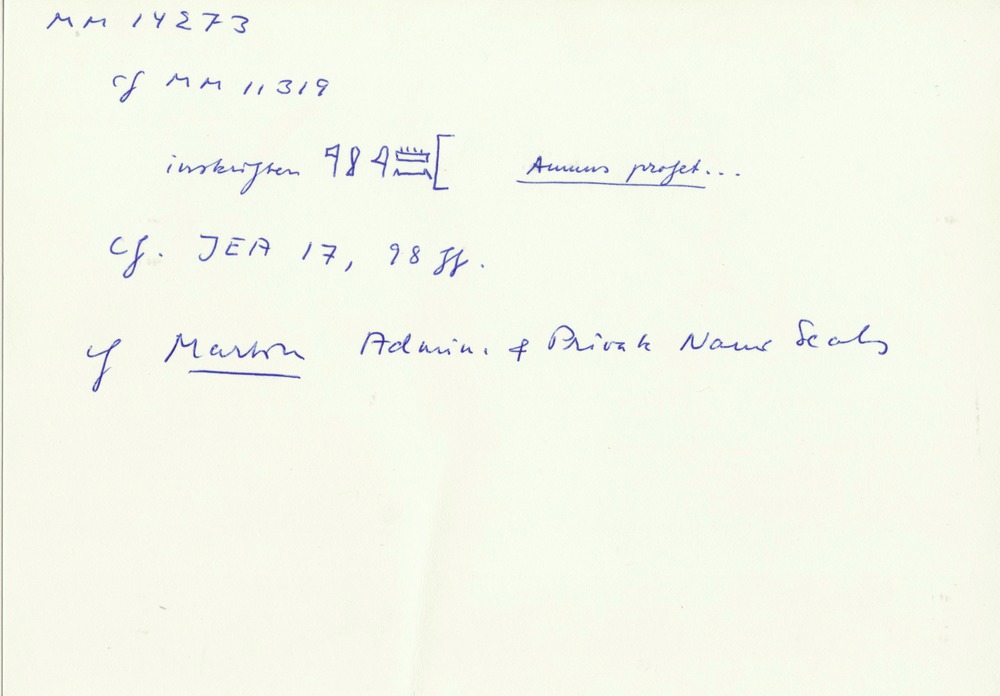 MM 14273
cf MM 11319
inskriften 𓊹𓍛𓇋𓏠𓈖[ Amuns profet...
Cf. JEA 17, 98 ff.
cf Martin Admin. & Private Name Seals